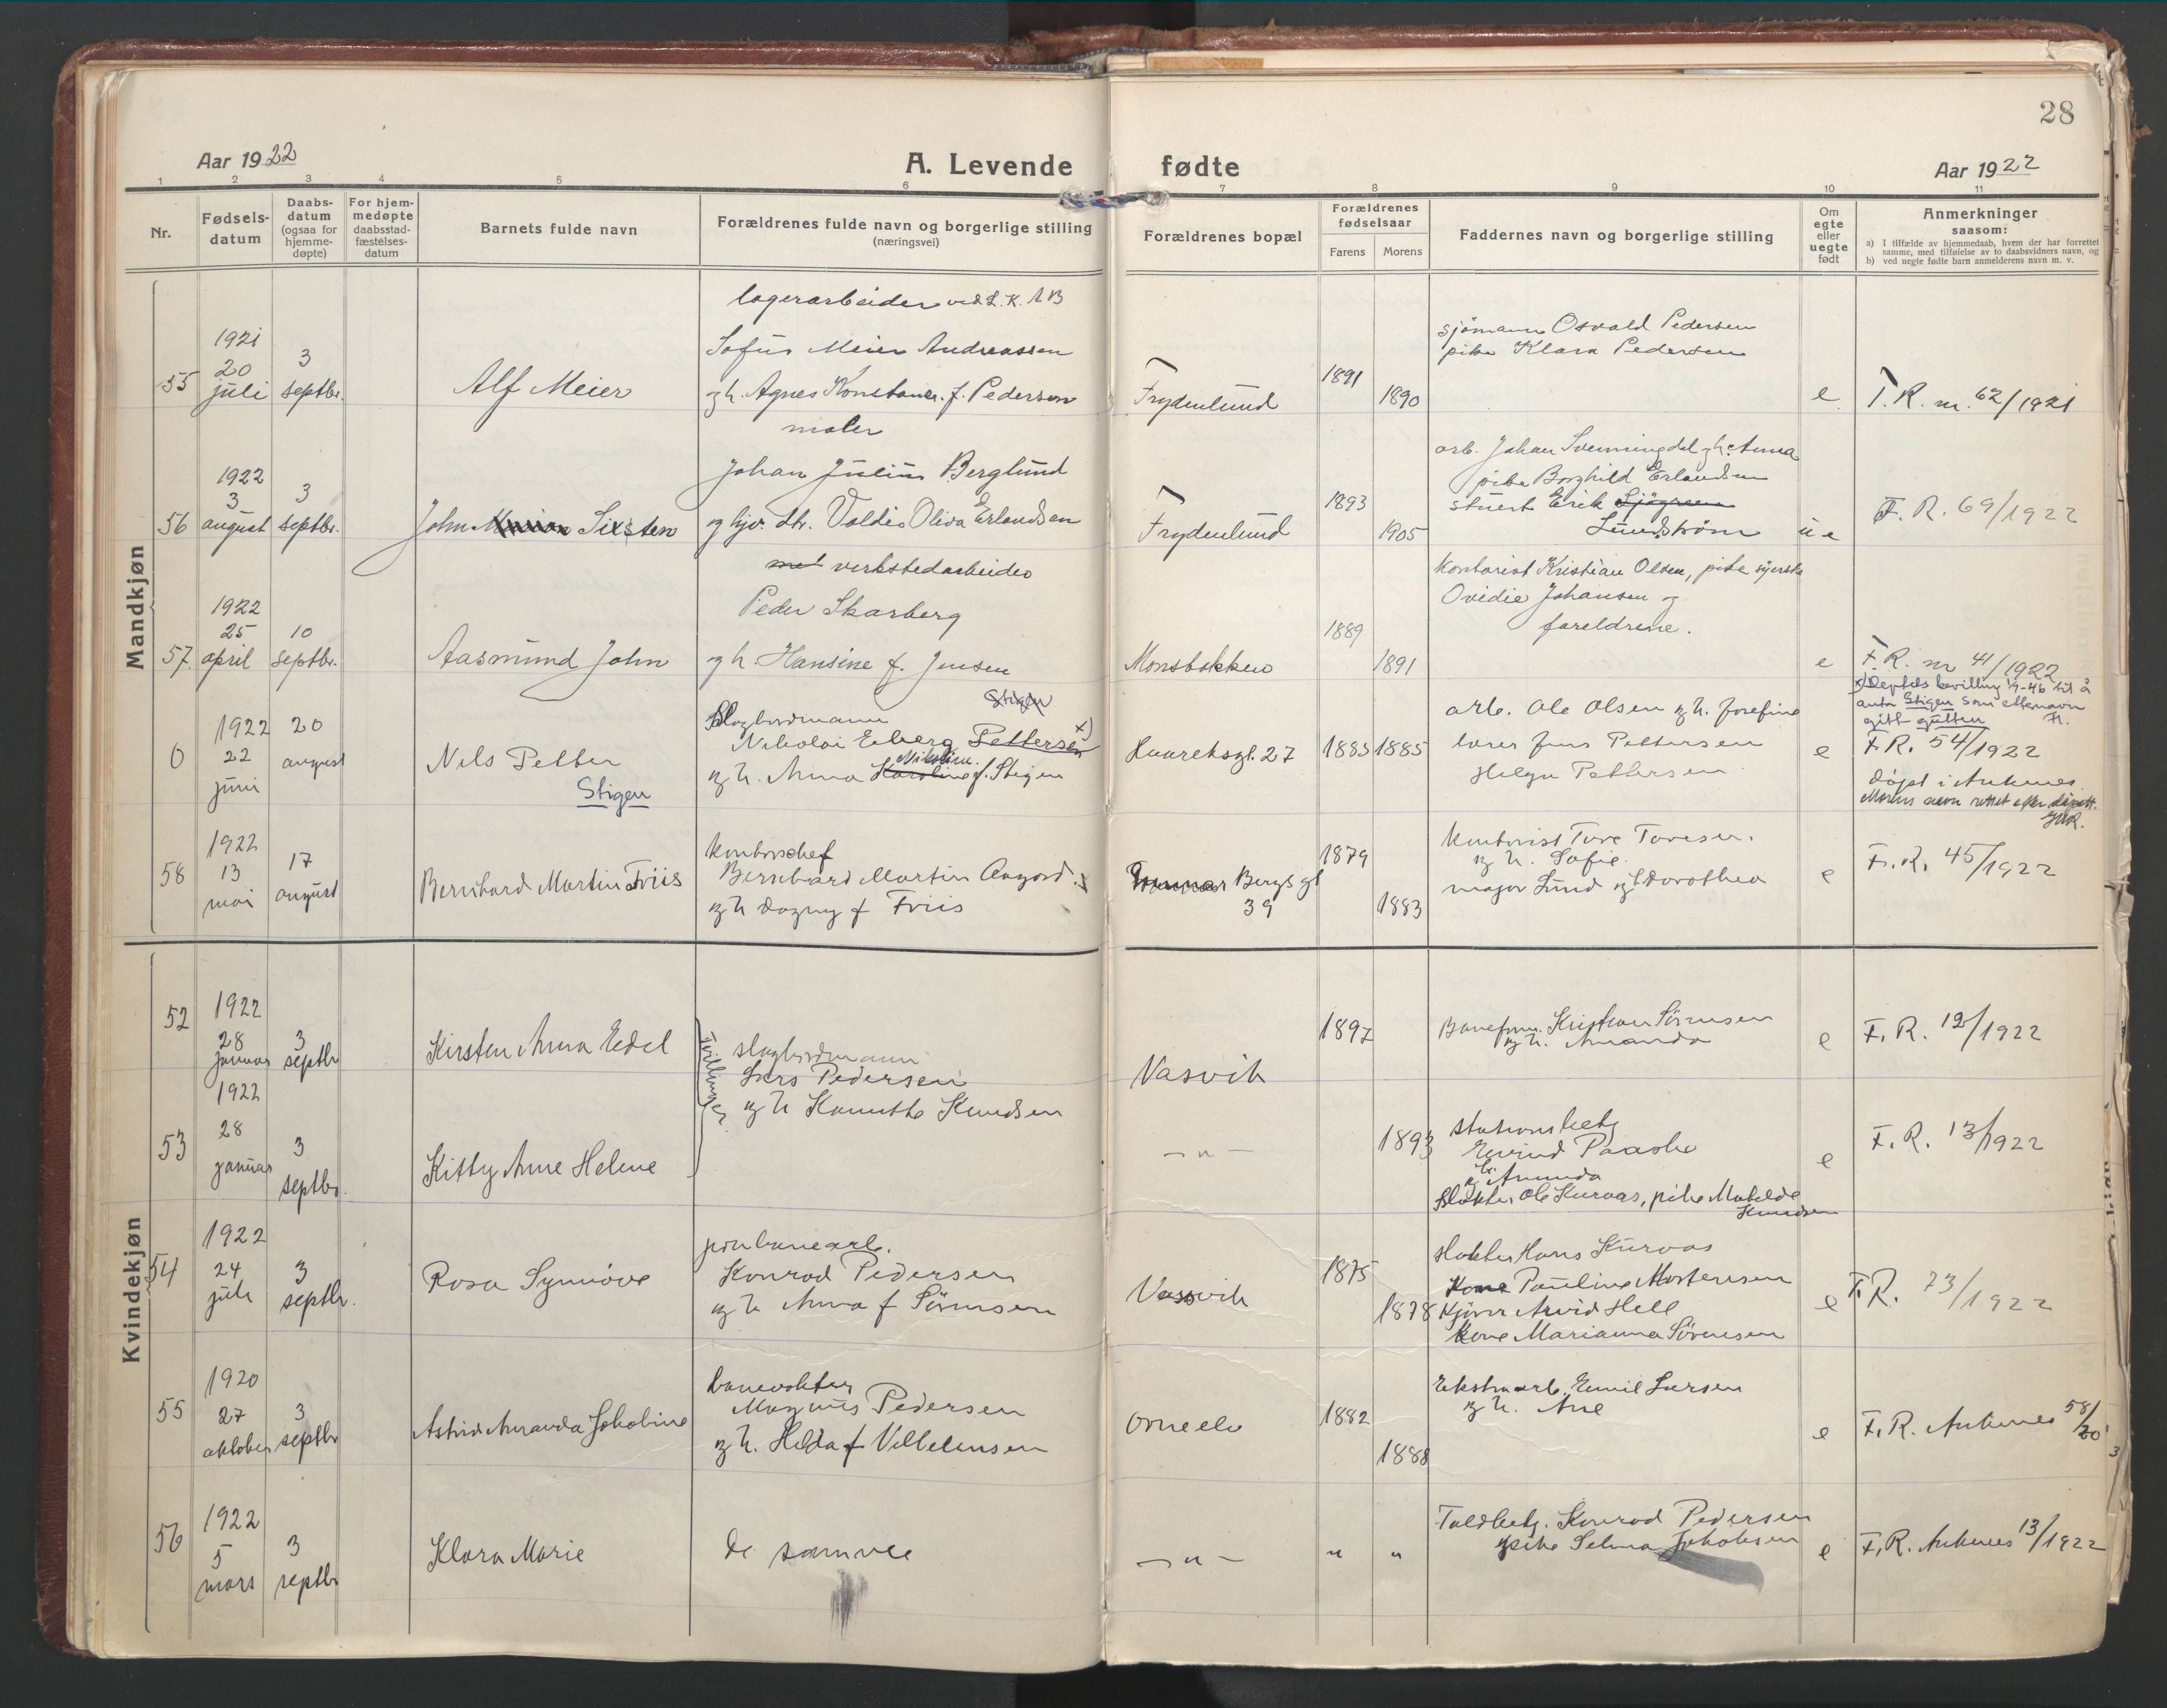 28
Aar 1922
A. Levende fødte
Aar 1922
1 2 3 4 5 6 7 8 9 10 11
Nr.
Fødsels-
datum
Daabs-
datum
(ogsaa for
hjemme-
døpte)
For hjem-
medøpte
daabsstad-
fæstelses-
datum
Barnets fulde navn
Forældrenes fulde navn og borgerlige stilling
(næringsvei)
Forældrenes bopæl
Forældrenes
fødselsaar
Farens Morens
Faddernes navn og borgerlige stilling
Om
egte
eller
uegte
født
Anmerkninger
saasom:
a) I tilfælde av hjemmedaab, hvem der har forrettet
samme, med tilføielse av to daabsvidners navn, og
b) ved uegte fødte barn anmelderens navn m. v.
Mandkjøn
55
1921
20
juli
3
septbr.
Alf Meier
lagerarbeider ved L. K. A B
Sofus Meier Andreassen
og h. Agnes Konstance f. Pedersen
Frydenlund
1891
1890
sjömann Osvald Pedersen
pike Klara Pedersen
e
F. R. nr. 62/1921
56
1922
3
august
3
septbr.
John Sixsten
maler
Johan Julius Berglund
og hjv. dtr. Valdis Oliva Erlandsen
Frydenlund
1893
1905
arb. Johan Svenningdal og h. Anna
pike Borghild Erlandsen
stuert Erik Sjögreen
Lundström
u e
F. R. 69/1922
57.
1922
25
april
10
septbr.
Aasmund John
verkstedarbeider
Peder Skarberg
og h. Hansine f. Jensen
Monsbakken
1889
1891
kontorist Kristian Olsen, pike syerske
Ovidie Johansen og
foreldrene.
e
F. R. nr 41/1922
0
1922
22
juni
20
august
Nils Petter
Stigen
Stigen
Slagbordmann
Nikolai Eeberg Pettersen x)
og h. Anna Karoline Nikoline f. Stigen
Haareksgt. 27
1883 1885
arb. Ole Olsen og h. Josefine
lærer Jens Pettersen
Helga Pettersen
e
x) Deptets bevilling 1/9-46 til å
anta Stigen som etternavn
gitt gutten
F. R. 54/1922
döpt i Ankenes
Morens navn rettet efter
58
1922
13
mai
17
august
Bernhard Martin Friis
kontorchef
Bernhard Martin Aagard
og h Dagny f Friis
Gunnar Bergs gt
39
1879
1883
kontorist Tore Toresen.
og h. Sofie.
major Lund og h Dorothea
e
F. R. 45/1922
Kvindekjøn
52
1922
28
januar
3
septbr
Kirsten Anna Edel
Tvillinger
slagbordmann
Lars Pedersen
og h Kamitta Knudsen
Vasvik
1897
Baneform. Kristian Sörensen
og h. Amanda
e
F. R. 12/1922
53
1922
28
januar
3
septbr.
Kitty Anne Helene
— " —
1893
stationsbetj
Eivind Paaske
og h. Amanda
Slakter Ole Kurvas, pike Matilde
Knudsen
e
F. R. 13/1922
54
1922
24
juli
3
septbr.
Rosa Synnöve
jernbanearb.
Konrad Pedersen
og h Anna f Sörensen
Vassvik
1875
1878
slakter Hans Kurvas
Kone Pauline Mortensen
Kjörer Arvid Hell
Kone Marianna Sörensen
e
F. R. 73/1922
55
1920
27
oktober
3
septbr
Astrid Amanda Jakobine
banevokter
Magnus Pedersen
og h. Hilda f Vilhelmsen
Orneelv
1882
1888
Ekstraarb. Emil Larsen
og h. Ane
e
F. R. Ankenes 58/20
56
1922
5
mars
3
septbr
Klara Marie
de samme
— " —
" "
Toldbetj. Konrad Pedersen
pike Selma Jakobsen
e
F. R. Ankenes 13/1922